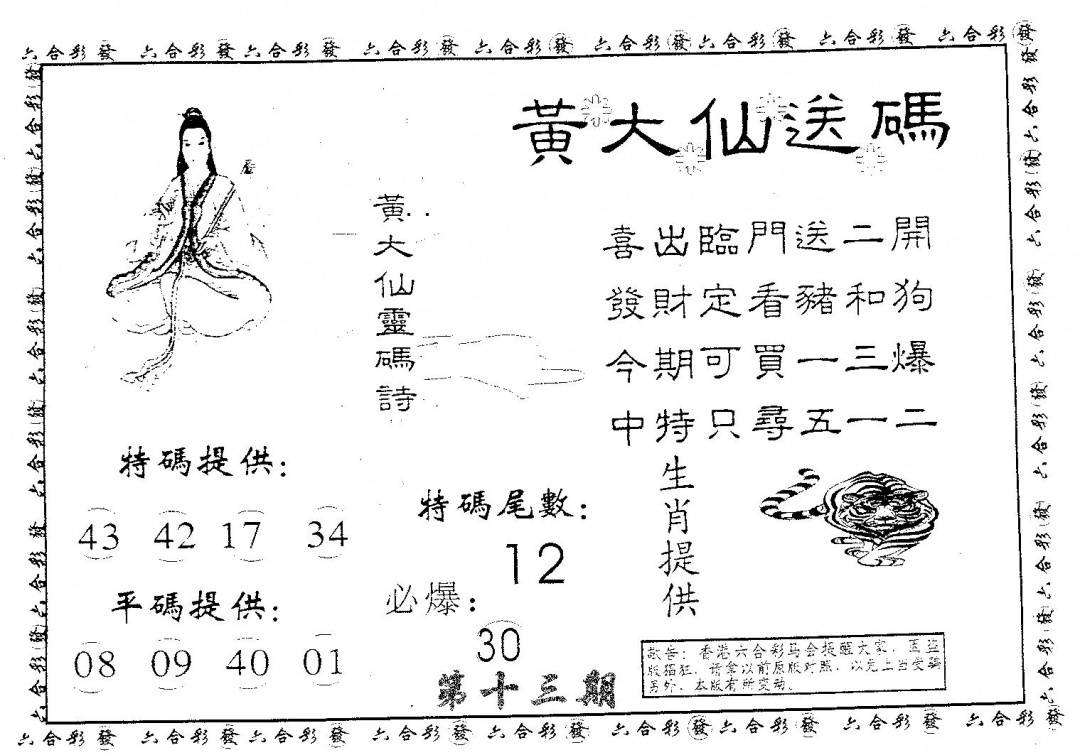 六合彩發 六合彩發六合彩發 六合彩發 六合彩發 六合彩發六合彩發 六合彩發 六合彩發
黃大仙送碼
黃大仙靈碼詩
喜出臨門送二開
發財定看豬和狗
今期可買一三爆
中特只尋五一二
特碼提供：
43 42 17 34
平碼提供：
08 09 40 01
特碼尾數：
12
必爆：
30
第十三期
生肖提供
敬告：香港六合彩马会提醒大家，因盗
版猖狂，请拿以前原版对照，以免上当受骗
另外，本版有所变动。
六合彩發 六合彩發六合彩發 六合彩發 六合彩發 六合彩發六合彩發 六合彩發 六合彩發